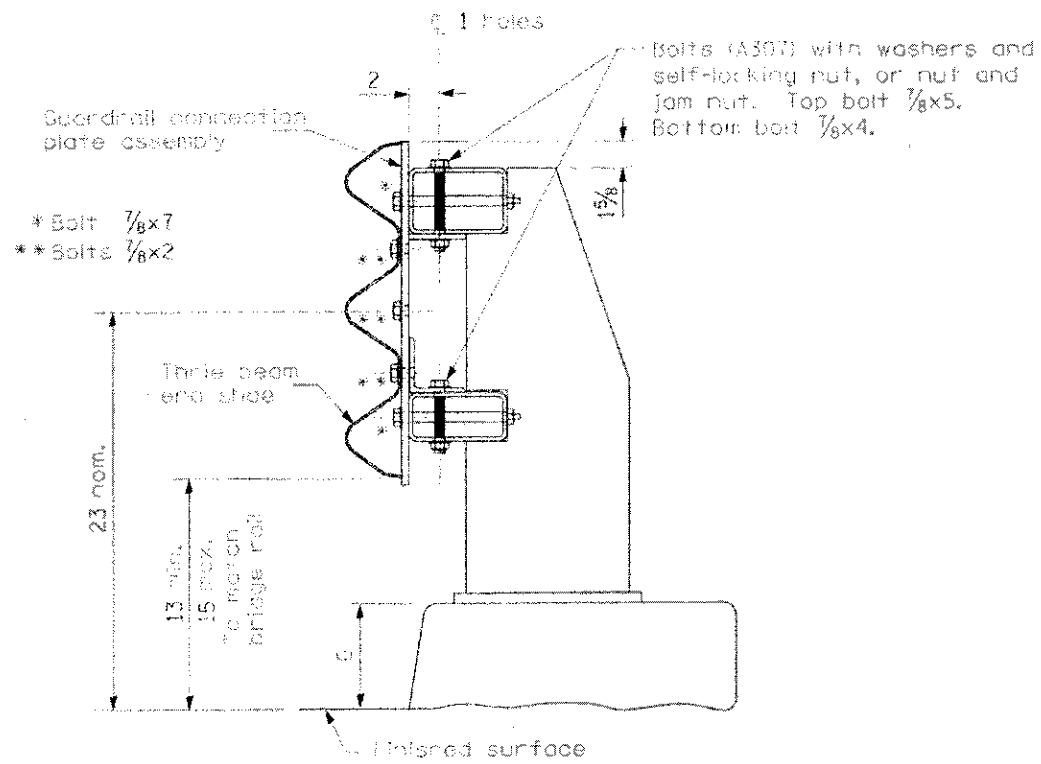 ℄ 1 holes
Bolts (A307) with washers and
self-locking nut, or nut and
jam nut. Top bolt ⅞x5.
Bottom bolt ⅞x4.
2
Guardrail connection
plate assembly
1⅝
*
* Bolt ⅞x7
** Bolts ⅞x2
**
**
Thrie beam
end shoe
**
*
23 nom.
13 min.
15 max.
To match
bridge rail
Finished surface